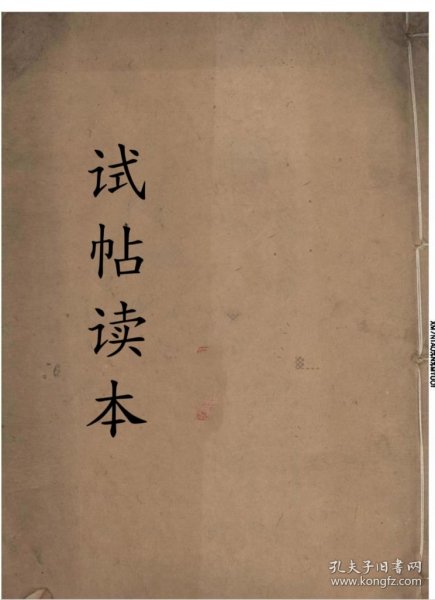 试帖读本
孔夫子旧书网
www.kongfz.com